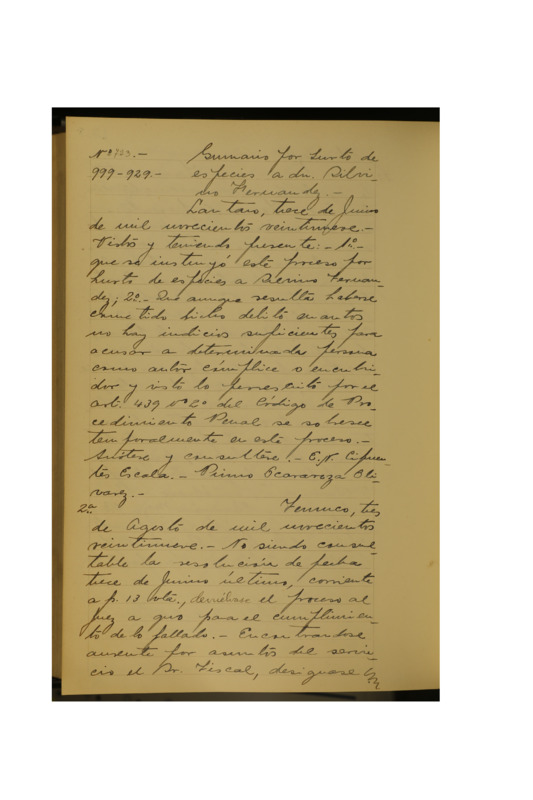 Nº 8723.- Sumario por hurto de
999-929.- especies a dn. Silvi-
no Fernandez.-
Lautaro, trece de Junio
de mil novecientos veintinueve.-
Vistos y teniendo presente:- 1º.-
que se instruyó este proceso por
hurto de especies a Silvino Fernan-
dez; 2º.- Que aunque resulta haberse
cometido dicho delito en autos
no hay indicios suficientes para
acusar a determinada persona
como autor cómplice o encubri-
dor y visto lo prescrito por el
art. 439 Nº 2º del Código de Pro-
cedimiento Penal se sobresee
temporalmente en este proceso.-
Anótese y consúltese.- E.N. Cifuen-
tes Escala.- Primo Oli-
varez.-
2ª Temuco, tres
de Agosto de mil novecientos
veintinueve.- No siendo consul-
table la resolución de fecha
trece de Junio último, corriente
a fs. 13 vta., devuélvase el proceso al
Juez a quo para el cumplimien-
to de lo fallado.- Encontrandose
ausente por asuntos del servi-
cio el Sr. Fiscal, desiguase